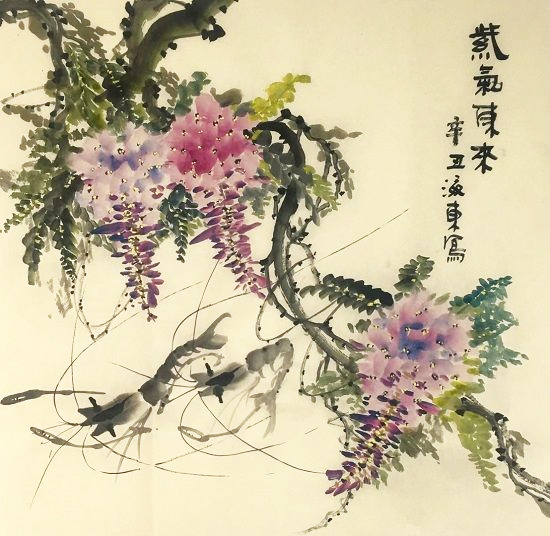 紫氣東來
辛丑海東寫